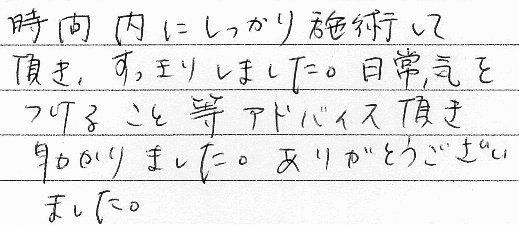 時間内にしっかり施術して
頂き、すっきりしました。日常、気を
つけること等アドバイス頂き
助かりました。ありがとうござい
ました。